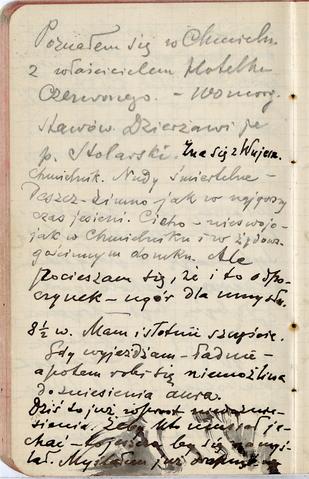 Poznałem się w Chmieln.
z właścicielem Hotelku
Czerwonego. - Womorg.
Stawów. Dzierżawi je
p. Stolarski. Zna się z Wujem.
Chmielnik. Nudy śmiertelne -
Deszcz - zimno jak w najgorszy
czas jesieni. Cicho - nieswojo -
jak w Chmielniku i w żydows.
gościnnym domku. Ale
pocieszam się, że i to odpo-
czynek - ugór dla umysłu.
8 1/2 w. Mam istotnie szczęście.
Gdy wyjeżdżam - ładnie -
a potem robi się niemożliwa
do zniesienia aura.
Dziś to już wprost
Żeby kto umyślał je-
chać - by się
Myślałem już